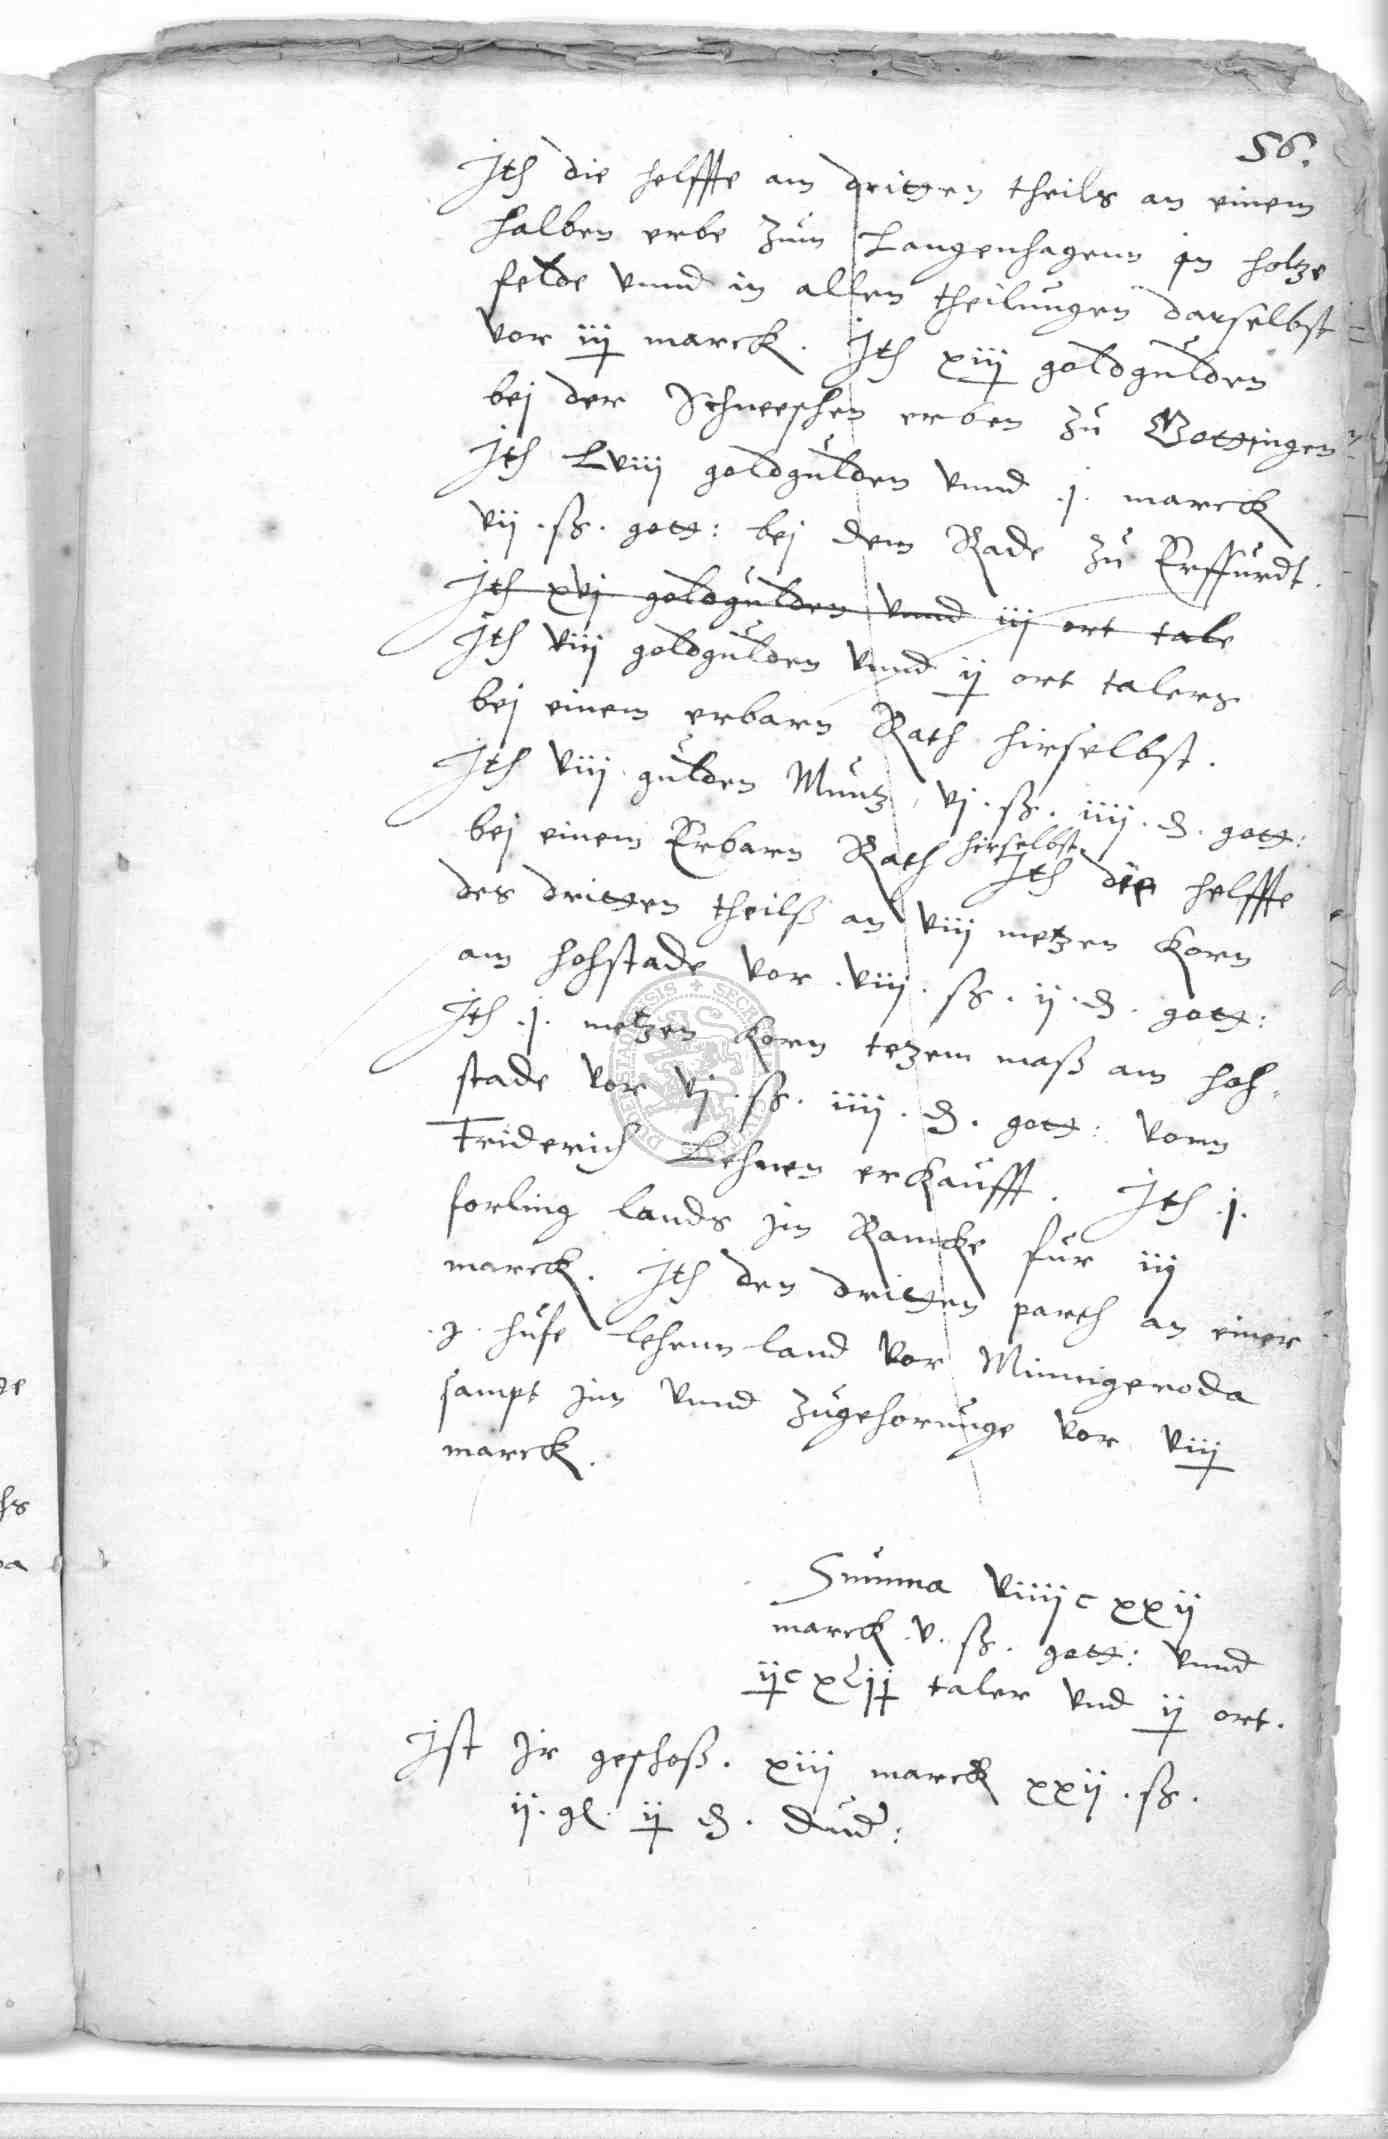 56.
Jth die helffte am dritten theils an einem
halben erbe zum Langenhagenn jn holtze
felde vnnd in allen theilungen darselbst
vor iij marck. Jth xiij goldgulden
bej der Schneeshen erben zu Gottingen
Jth Lviij goldgulden vnnd .j. marck
vij . ß . gott: bej dem Rade zu Erffurdt.
Jth xvj goldgulden vnnd iij ort tale
Jth viij goldgulden vnnd ij ort talers
bej einem erbarn Rath hirselbst.
Jth viij gulden Muntz, vj . ß . iiij . d . gott:
bej einem Erbarn Rath hirselbst. Jth die helffte
des dritten theilß an viij metzen korn
am hohstade vor . viij . ß . ij . d . gott:
Jth .j. metzen korn tetzem maß am hoh-
stade vor vj . ß . iiij . d . gott: vonn
Friderich Lehnen erkaufft. Jth .j.
forling lands jm Ramcke fur iij
marck. Jth den dritten parth an einer
.j. hufe lehenn land vor Minnigeroda
sampt jnn vnnd zugehorunge vor viij
marck.
Summa viiijc xxij
marck .v. ß . gott: vnnd
ijc xlij taler vnd ij ort.
Jst Jr geshoß. xiij marck xxij . ß .
ij . gl . ij d . dud:
DUDERSTADIENSIS + SECRE CIVITATIS